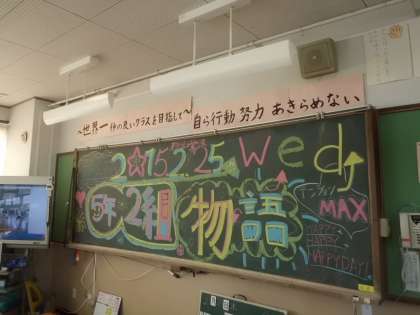 ～世界一 仲の良いクラスを目指して～
自ら行動 努力 あきらめない
2☆15.2.25 Wed
5年2組物語
MAX
HAPPY
HAPPY
HAPPYDAY!